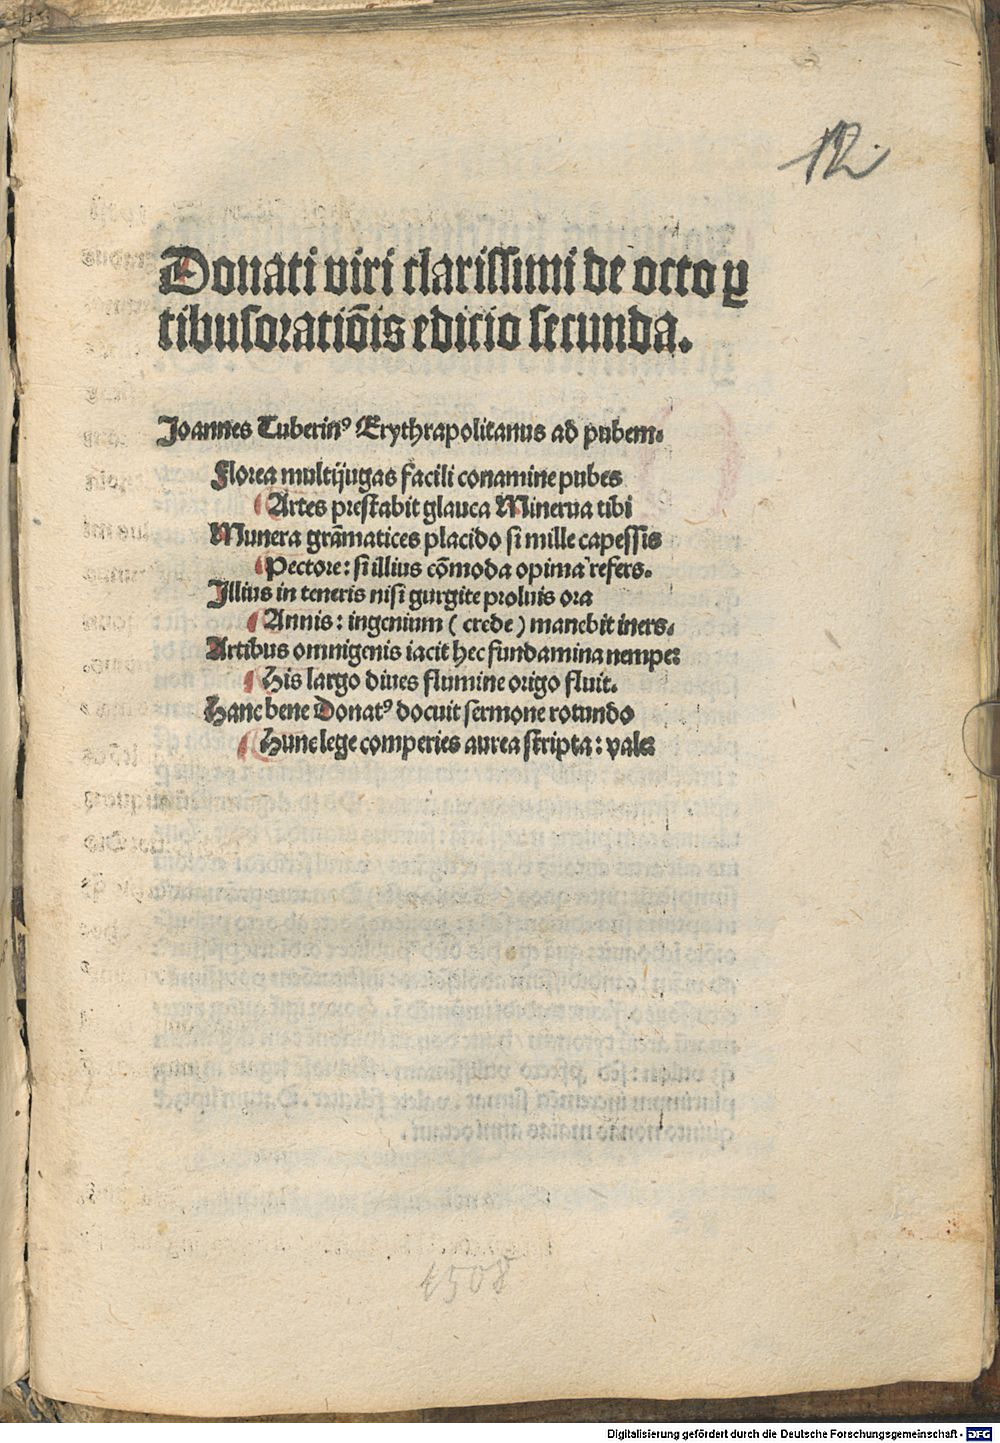 12.
Donati viri clarissimi de octo ꝑ
tibusoratiōis editio secunda.
Joannes Tuberinꝰ Erythrapolitanus ad pubem.
Florea multijugas facili conamine pubes
Artes prestabit glauca Minerua tibi
Munera grāmatices placido si mille capessis
Pectore: si illius cōmoda opima refers.
Illius in teneris nisi gurgite proluis ora
Annis: ingenium (crede) manebit iners.
Artibus omnigenis iacit hec fundamina nempe:
His largo diues flumine origo fluit.
Hanc bene Donatꝰ docuit sermone rotundo
Hunc lege comperies aurea scripta: vale:
1508
Digitalisierung gefördert durch die Deutsche Forschungsgemeinschaft - DFG